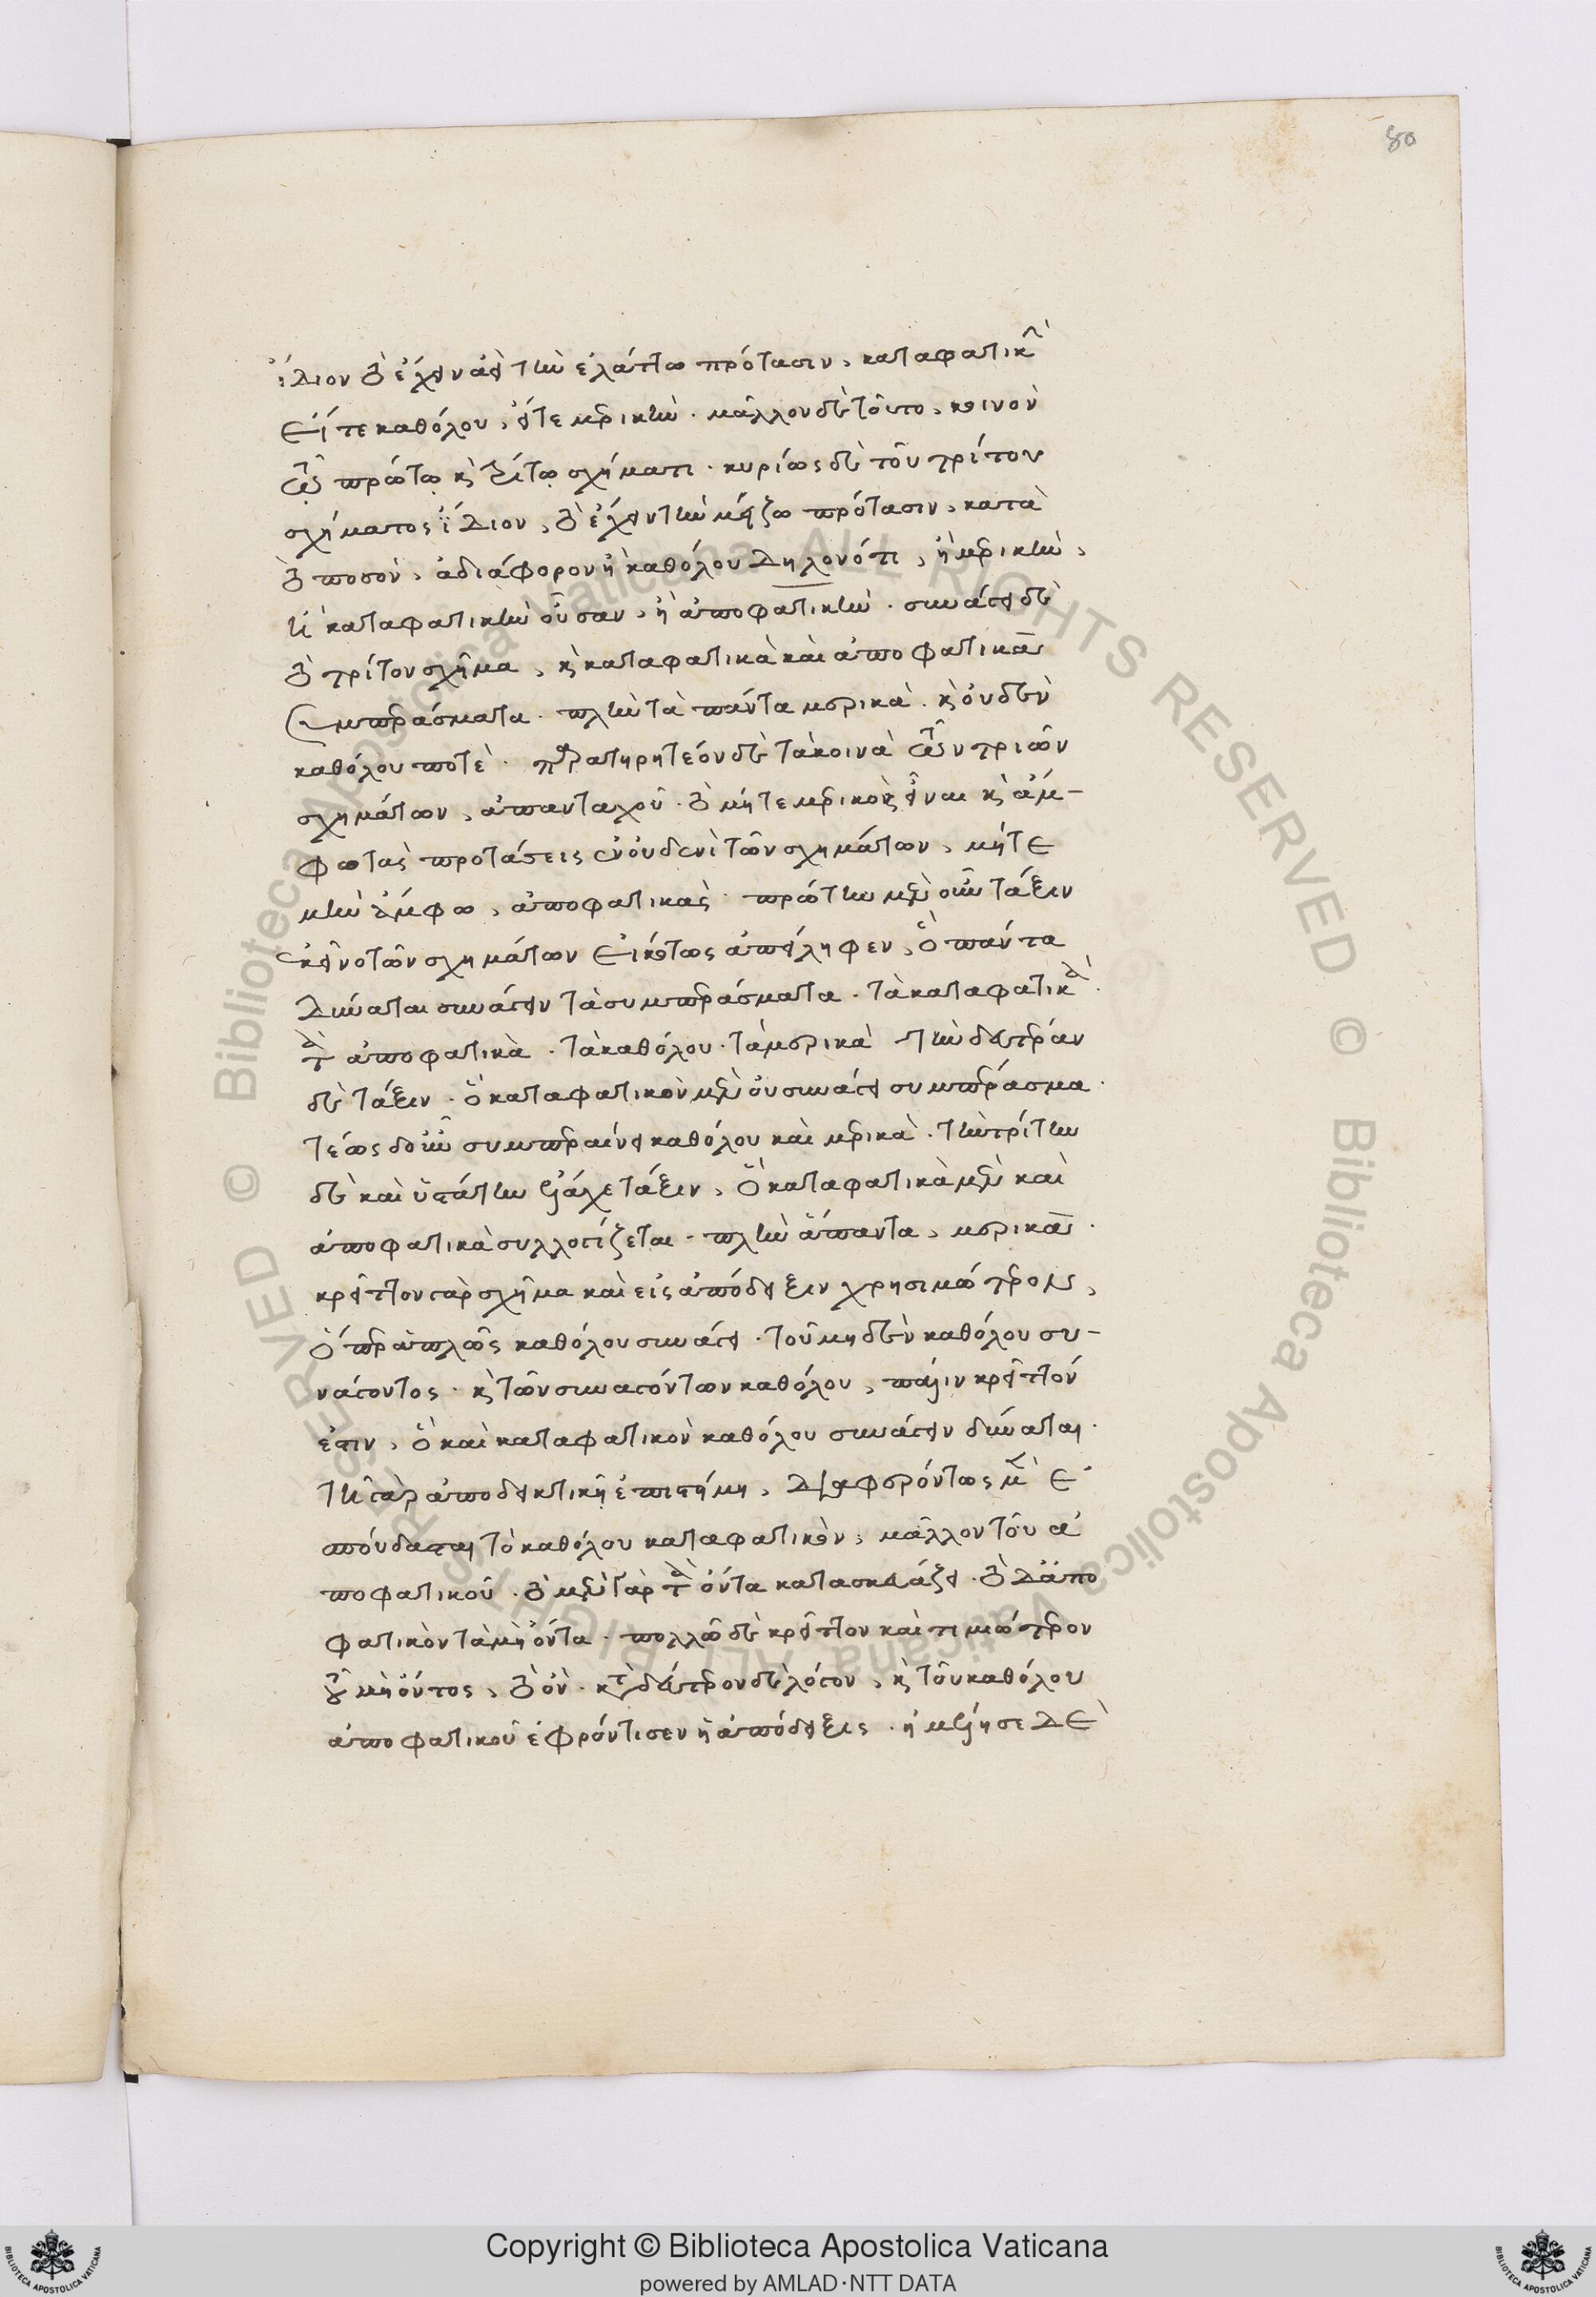 80
ἴδιον τὸ ἔχειν ἀεὶ τὴν ἐλάττω πρότασιν, καταφατικὴν
εἴτε καθόλου, εἴτε μερικήν. μᾶλλον δὲ τοῦτο, κοινὸν
τῷ πρώτῳ κ τρίτῳ σχήματι. κυρίως δὲ τοῦ τρίτου
σχήματος ἴδιον, τὸ ἔχειν τὴν μείζω πρότασιν, κατὰ
τὸ ποσὸν, ἀδιάφορον ἢ καθόλου δηλονότι, ἢ μερικὴν,
ἢ καταφατικὴν οὖσαν, ἢ ἀποφατικήν. συνάγει δὲ
τὸ τρίτον σχῆμα, κ καταφατικὰ καὶ ἀποφατικὰ
συμπεράσματα. πλὴν τὰ πάντα μερικὰ. κ οὐδὲν
καθόλου ποτέ. παρατηρητέον δὲ τὰ κοινὰ τῶν τριῶν
σχημάτων, ἁπανταχοῦ. τὸ μήτε μερικὰς εἶναι κ ἀμ-
φω τὰς προτάσεις ἐν οὐδενὶ τῶν σχημάτων, μήτε
μὴν ἄμφω, ἀποφατικάς. πρώτην μὲν οὖν τάξιν
ἐκεῖνο τῶν σχημάτων εἰκότως ἀπείληφεν, ὃ πάντα
δύναται συνάγειν τὰ συμπεράσματα. τὰ καταφατικὰ.
τὰ ἀποφατικὰ. τὰ καθόλου. τὰ μερικὰ τὴν δευτέραν
δὲ τάξιν. ὃ καταφατικὸν μὲν οὐ συνάγει συμπέρασμα.
τέως δ' οὖν συμπεραίνει καθόλου καὶ μερικὰ. τὴν τρίτην
δὲ καὶ ὑστάτην ἔλαχε τάξιν, ὃ καταφατικὰ μὲν καὶ
ἀποφατικὰ συλλογίζεται. πλὴν ἅπαντα, μερικὰ.
κρεῖττον γὰρ σχῆμα καὶ εἰς ἀπόδειξιν χρησιμώτερον,
ὅπερ ἁπλῶς καθόλου συνάγει. τοῦ μηδὲν καθόλου συ-
νάγοντος. κ τῶν συναγόντων καθόλου, πάλιν κρεῖττόν
ἐστιν, ὃ καὶ καταφατικὸν καθόλου συνάγειν δύναται.
τῇ γὰρ ἀποδεικτικῇ ἐπιστήμῃ, διαφερόντως μὲν ἐ
σπούδασται τὸ καθόλου καταφατικὸν, μᾶλλον τοῦ ἀ
ποφατικοῦ. τὸ μὲν γὰρ τὰ ὄντα κατασκευάζει. τὸ δ' ἀπο
φατικὸν τὰ μὴ ὄντα. πολλῶ δὲ κρεῖττον καὶ τιμιώτερον
τοῦ μὴ ὄντος, τὸ ὄν. κατὰ δεύτερον δὲ λόγον, κ τοῦ καθόλου
ἀποφατικοῦ ἐφρόντισεν ἡ ἀπόδειξις. ἠμέλησε δὲ
Copyright © Biblioteca Apostolica Vaticana
powered by AMLAD·NTT DATA